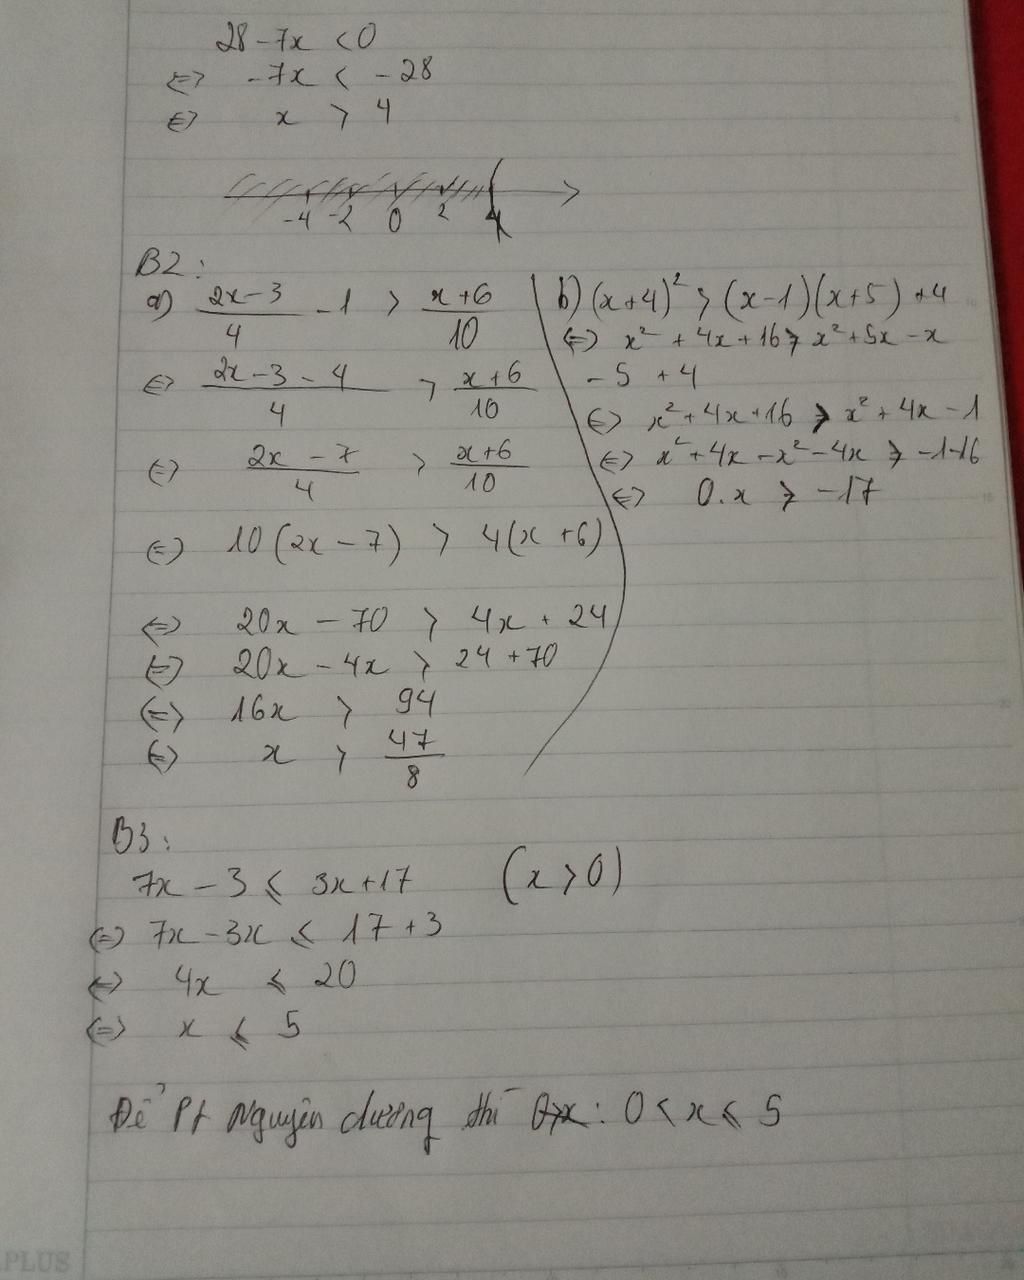 28 - 7x < 0
<=> -7x < -28
<=> x > 4
-4 -2 0 2 4
B2:
a) (2x-3)/4 - 1 > (x+6)/10
<=> (2x-3-4)/4 > (x+6)/10
<=> (2x-7)/4 > (x+6)/10
<=> 10(2x-7) > 4(x+6)
<=> 20x - 70 > 4x + 24
<=> 20x - 4x > 24 + 70
<=> 16x > 94
<=> x > 47/8
b) (x+4)² ≥ (x-1)(x+5) + 4
<=> x² + 4x + 16 ≥ x² + 5x - x
- 5 + 4
<=> x² + 4x + 16 ≥ x² + 4x - 1
<=> x² + 4x - x² - 4x ≥ -1-16
<=> 0.x ≥ -17
B3:
7x - 3 ≤ 3x + 17 (x > 0)
<=> 7x - 3x ≤ 17 + 3
<=> 4x ≤ 20
<=> x ≤ 5
Để Pt Nguyên dương thì : 0 < x ≤ 5
PLUS